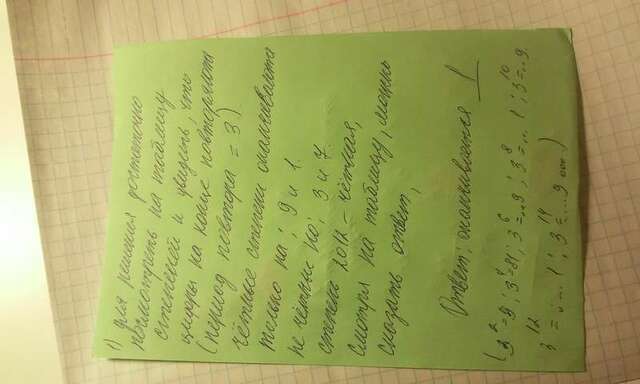 1) для решения достаточно
посмотреть на таблицу
степеней и увидеть, что
цифры на конце повторяются
(период повтора = 3).
чётные степени оканчиваются
только на; 9 и 1.
не чётные на; 3 и 7.
степень 2012 - чётная,
смотря на таблицу, можно
сказать ответ,
Ответ: оканчивается 1
(3²=9; 3⁴=81; 3⁶=..9; 3⁸=... 1; 3¹⁰=..9.
3¹²=... 1; 3¹⁴=...9 ...)